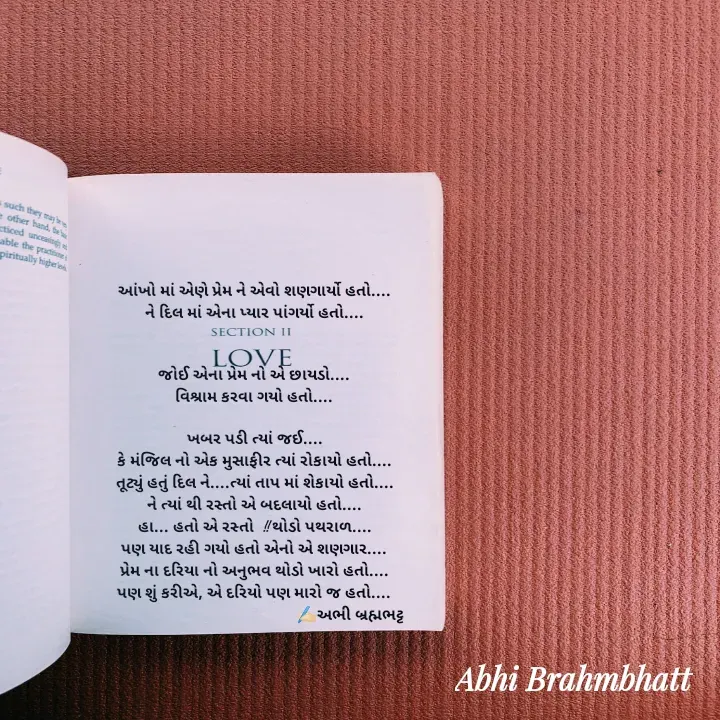 s such they may be
e other hand, the
cticed unceasingly
able the practitioner
piritually higher
આંખો માં એણે પ્રેમ ને એવો શણગાર્યો હતો....
ને દિલ માં એના પ્યાર પાંગર્યો હતો....
SECTION II
LOVE
જોઈ એના પ્રેમ નો એ છાયડો....
વિશ્રામ કરવા ગયો હતો....
ખબર પડી ત્યાં જઈ....
કે મંજિલ નો એક મુસાફીર ત્યાં રોકાયો હતો....
તૂટ્યું હતું દિલ ને....ત્યાં તાપ માં શેકાયો હતો....
ને ત્યાં થી રસ્તો એ બદલાયો હતો....
હા... હતો એ રસ્તો !!થોડો પથરાળ....
પણ યાદ રહી ગયો હતો એનો એ શણગાર....
પ્રેમ ના દરિયા નો અનુભવ થોડો ખારો હતો....
પણ શું કરીએ, એ દરિયો પણ મારો જ હતો....
✍️અભી બ્રહ્મભટ્ટ
Abhi Brahmbhatt